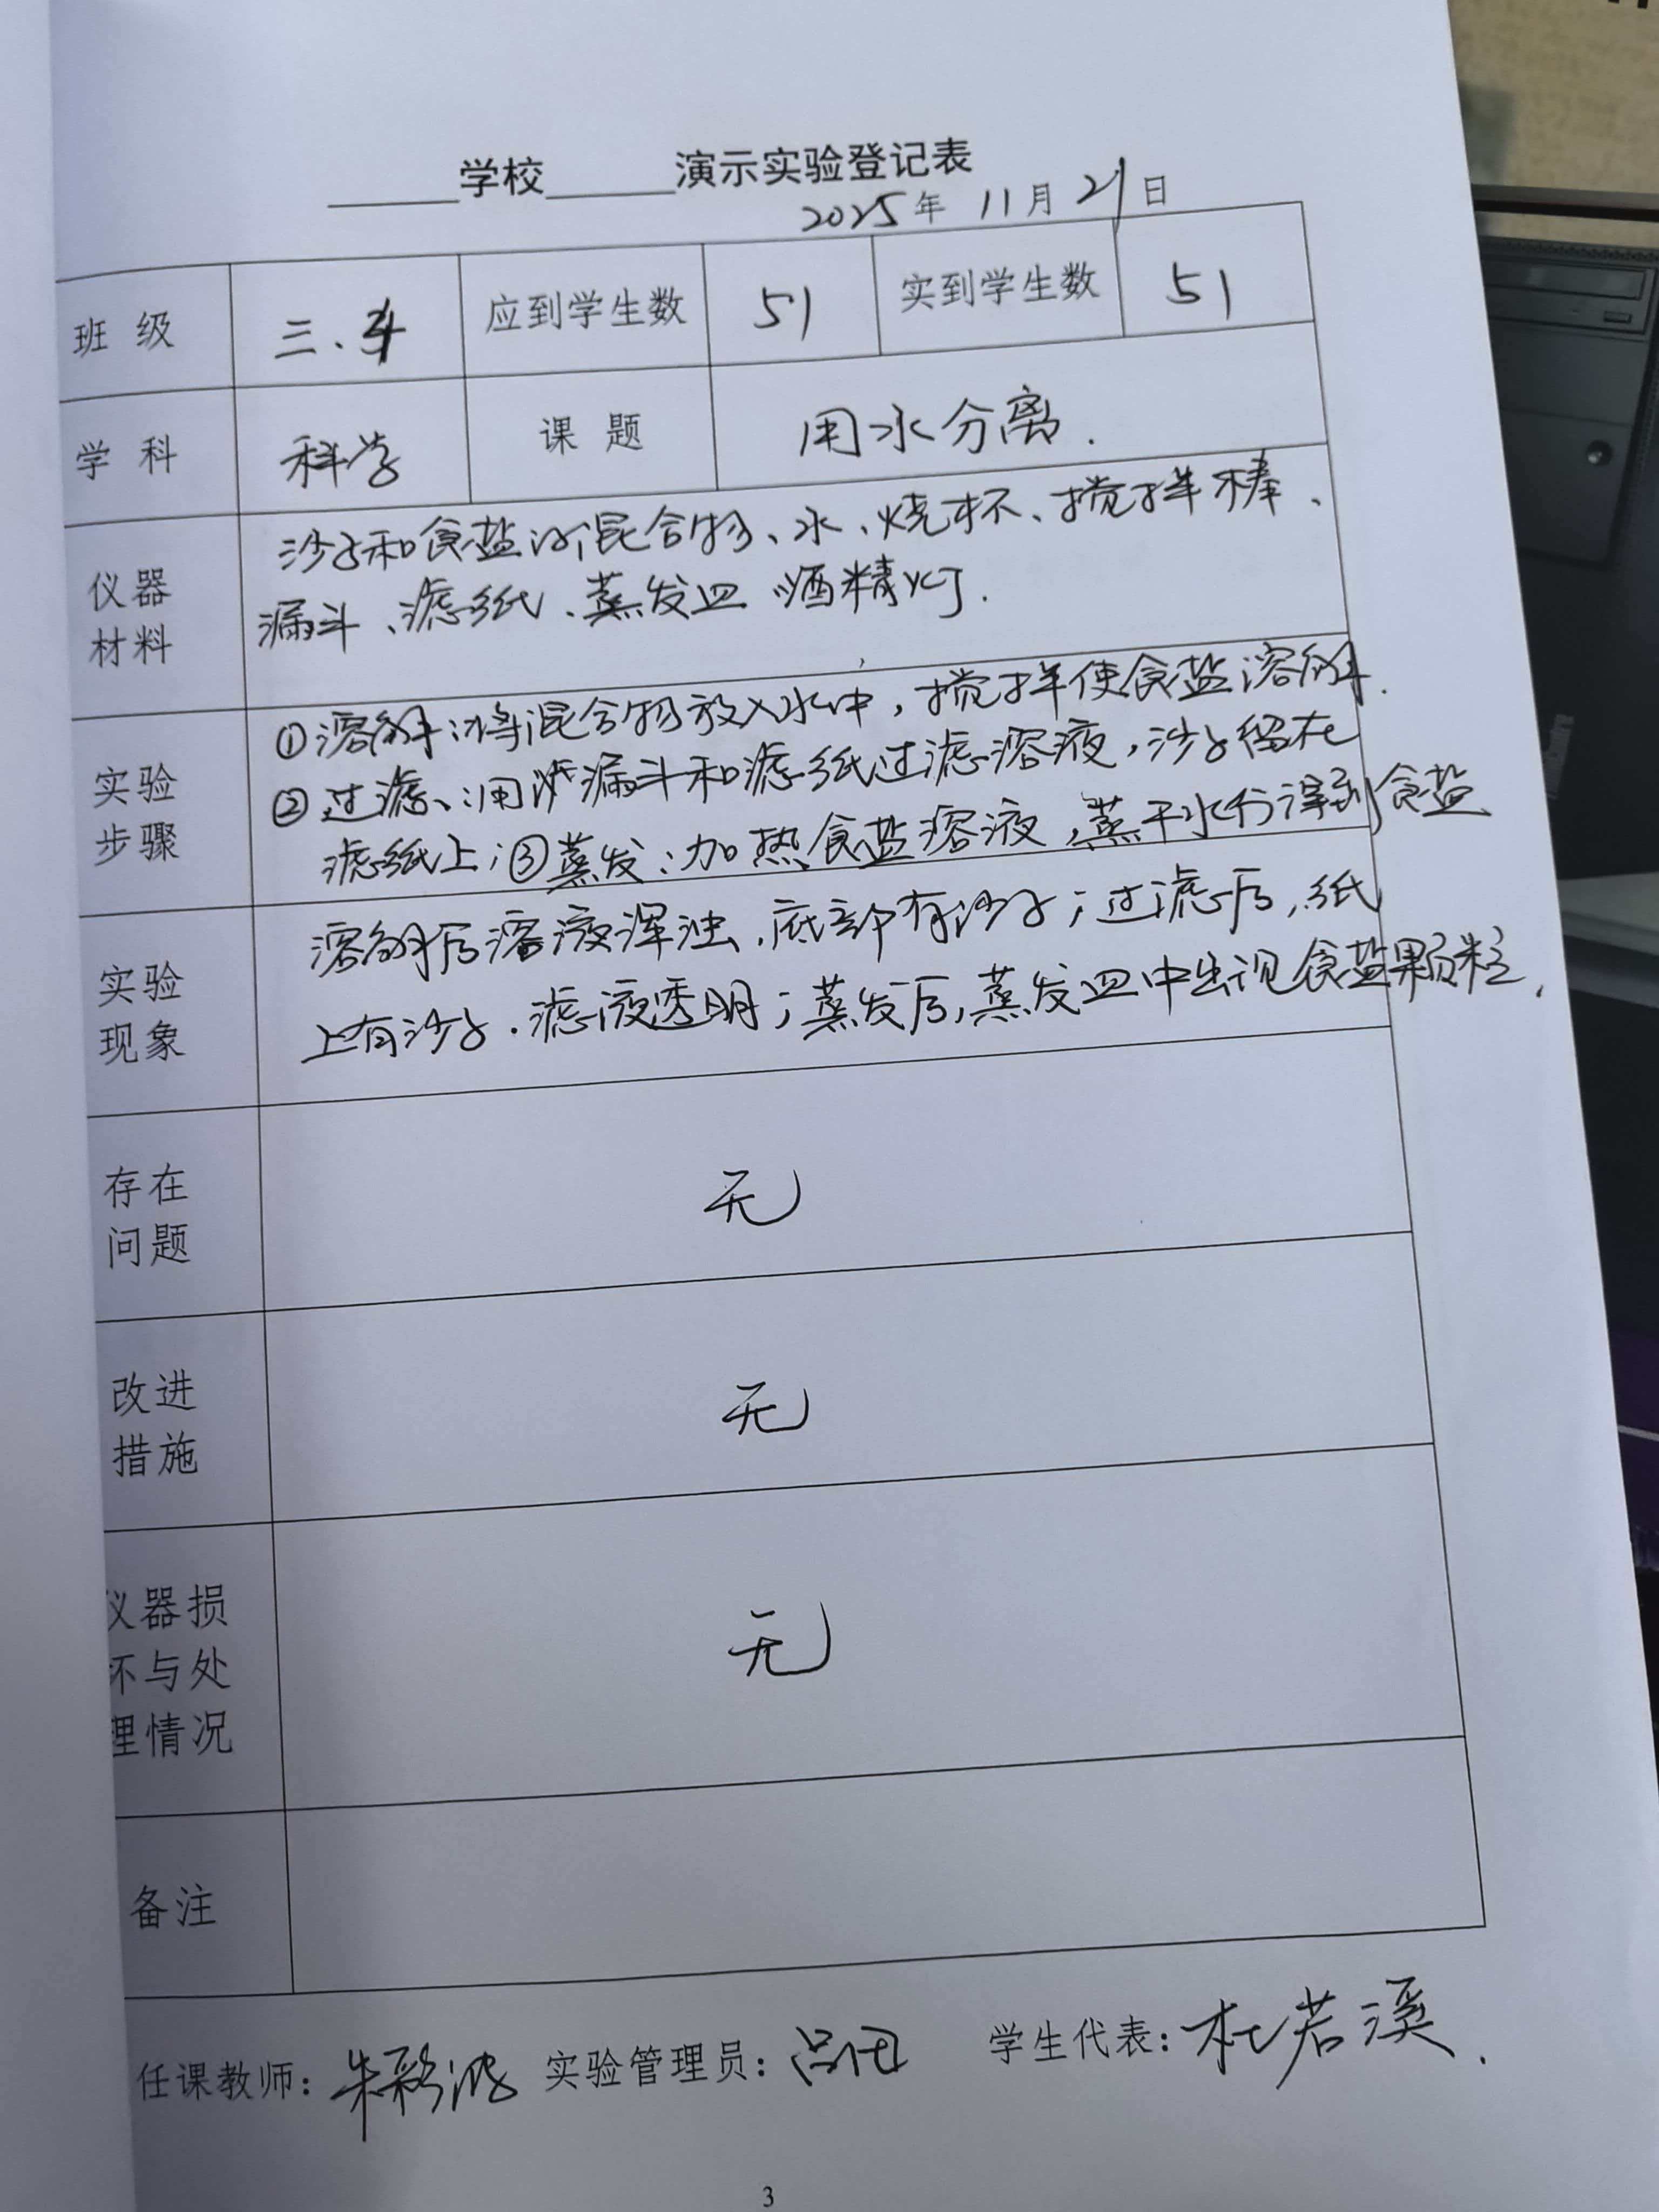 学校 演示实验登记表
2025年 11月 21日
班 级 三. 应到学生数 51 实到学生数 51
学 科 科学 课 题 用水分离.
仪器
材料
沙子和食盐的混合物、水、烧杯、搅拌棒、
漏斗、滤纸、蒸发皿 酒精灯.
实验
步骤
①溶解:将混合物放入水中,搅拌使食盐溶解.
②过滤:用漏斗和滤纸过滤溶液,沙子留在
滤纸上;③蒸发:加热食盐溶液,蒸干水分得到食盐
实验
现象
溶解后溶液浑浊,底部有沙子;过滤后,纸
上有沙子.滤液透明;蒸发后,蒸发皿中出现食盐颗粒.
存在
问题
无
改进
措施
无
仪器损
坏与处
理情况
无
备注
任课教师: 朱 实验管理员: 学生代表:杜若溪.
3